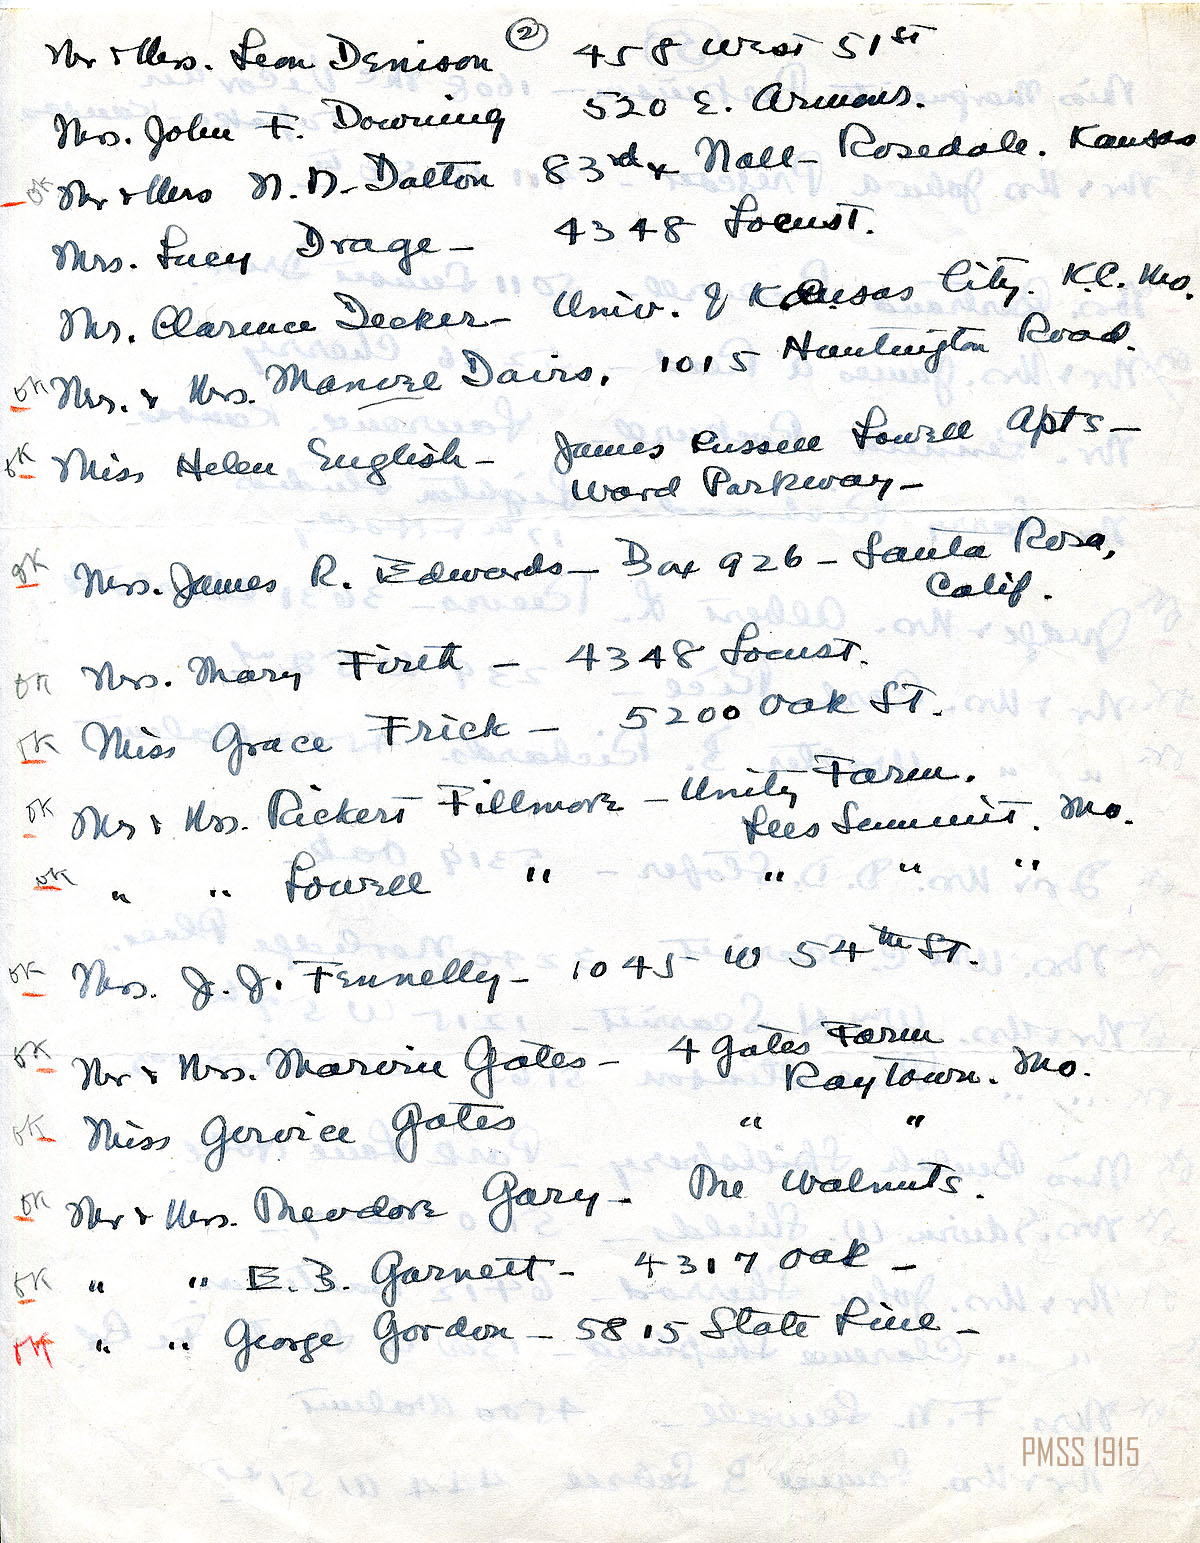 ②
Mr & Mrs. Leon Denison 458 West 51st
Mrs. John F. Downing 520 E. Armour.
OK Mr & Mrs N. D. Dalton 83rd & Nall - Rosedale. Kansas
Mrs. Lucy Drage - 4348 Locust.
Mr. Clarence Decker - Univ. of Kansas City. K.C. Mo.
OK Mr. & Mrs. Manvel Davis. 1015 Huntington Road.
OK Miss Helen English - James Russell Lowell Apts -
Ward Parkway -
OK Mrs. James R. Edwards - Box 926 - Santa Rosa,
Calif.
OK Mrs. Mary Firth - 4348 Locust.
OK Miss Grace Frick - 5200 Oak St.
OK Mr & Mrs. Rickert Fillmore - Unity Farm.
Lees Summit. Mo.
OK " " Lowell " " " "
OK Mrs. J. J. Fennelly - 1045 W 54th St.
OK Mr & Mrs. Marvin Gates - 4 Gates Farm
Raytown. Mo.
OK Miss Gervice Gates " "
OK Mr & Mrs. Theodore Gary - The Walnuts.
OK " " E. B. Garnett - 4317 Oak -
OK " " George Gordon - 5815 State Line -
PMSS 1915